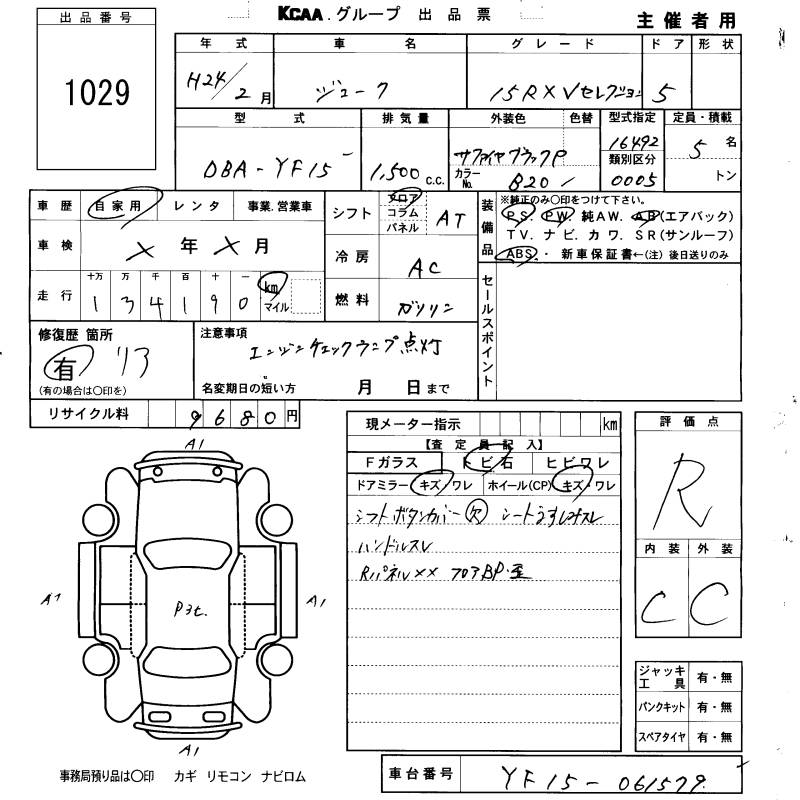 KCAA.グループ 出品票
主催者用
出品番号
1029
年式 車名 グレード ドア 形状
H24/2月 ジューク 15RX Vセレクション 5
型式 排気量 外装色 色替 型式指定 定員・積載
DBA-YF15 1,500 c.c. サファイヤブラックP 16492 5名
カラーNo. B20 類別区分 0005 トン
車歴 自家用 レンタ 事業.営業車
車検 ×年×月
走行 十万 万 千 百 十 一
134190 km マイル
シフト フロア コラム パネル AT
冷房 AC
燃料 ガソリン
装備品 ※純正のみ〇印をつけて下さい。
PS. PW. 純AW. AB(エアバック)
TV. ナビ. カワ. SR(サンルーフ)
ABS. ・ 新車保証書←(注)後日送りのみ
セールスポイント
修復歴 箇所
有 リア
(有の場合は〇印を)
注意事項
エンジンチェックランプ点灯
名変期日の短い方 月 日まで
リサイクル料 9680円
現メーター指示 km
【査定員記入】
Fガラス トビ石 ヒビワレ
ドアミラー キズ/ワレ ホイール(CP) キズ・ワレ
シフトボタンカバー欠 シートうすしみスレ
ハンドルスレ
Rパネル×× フロアBP・歪
評価点
R
内装 外装
C C
ジャッキ工具 有・無
パンクキット 有・無
スペアタイヤ 有・無
A1
A1 P3t. A1
A1
事務局預り品は〇印 カギ リモコン ナビロム
車台番号 YF15-061579